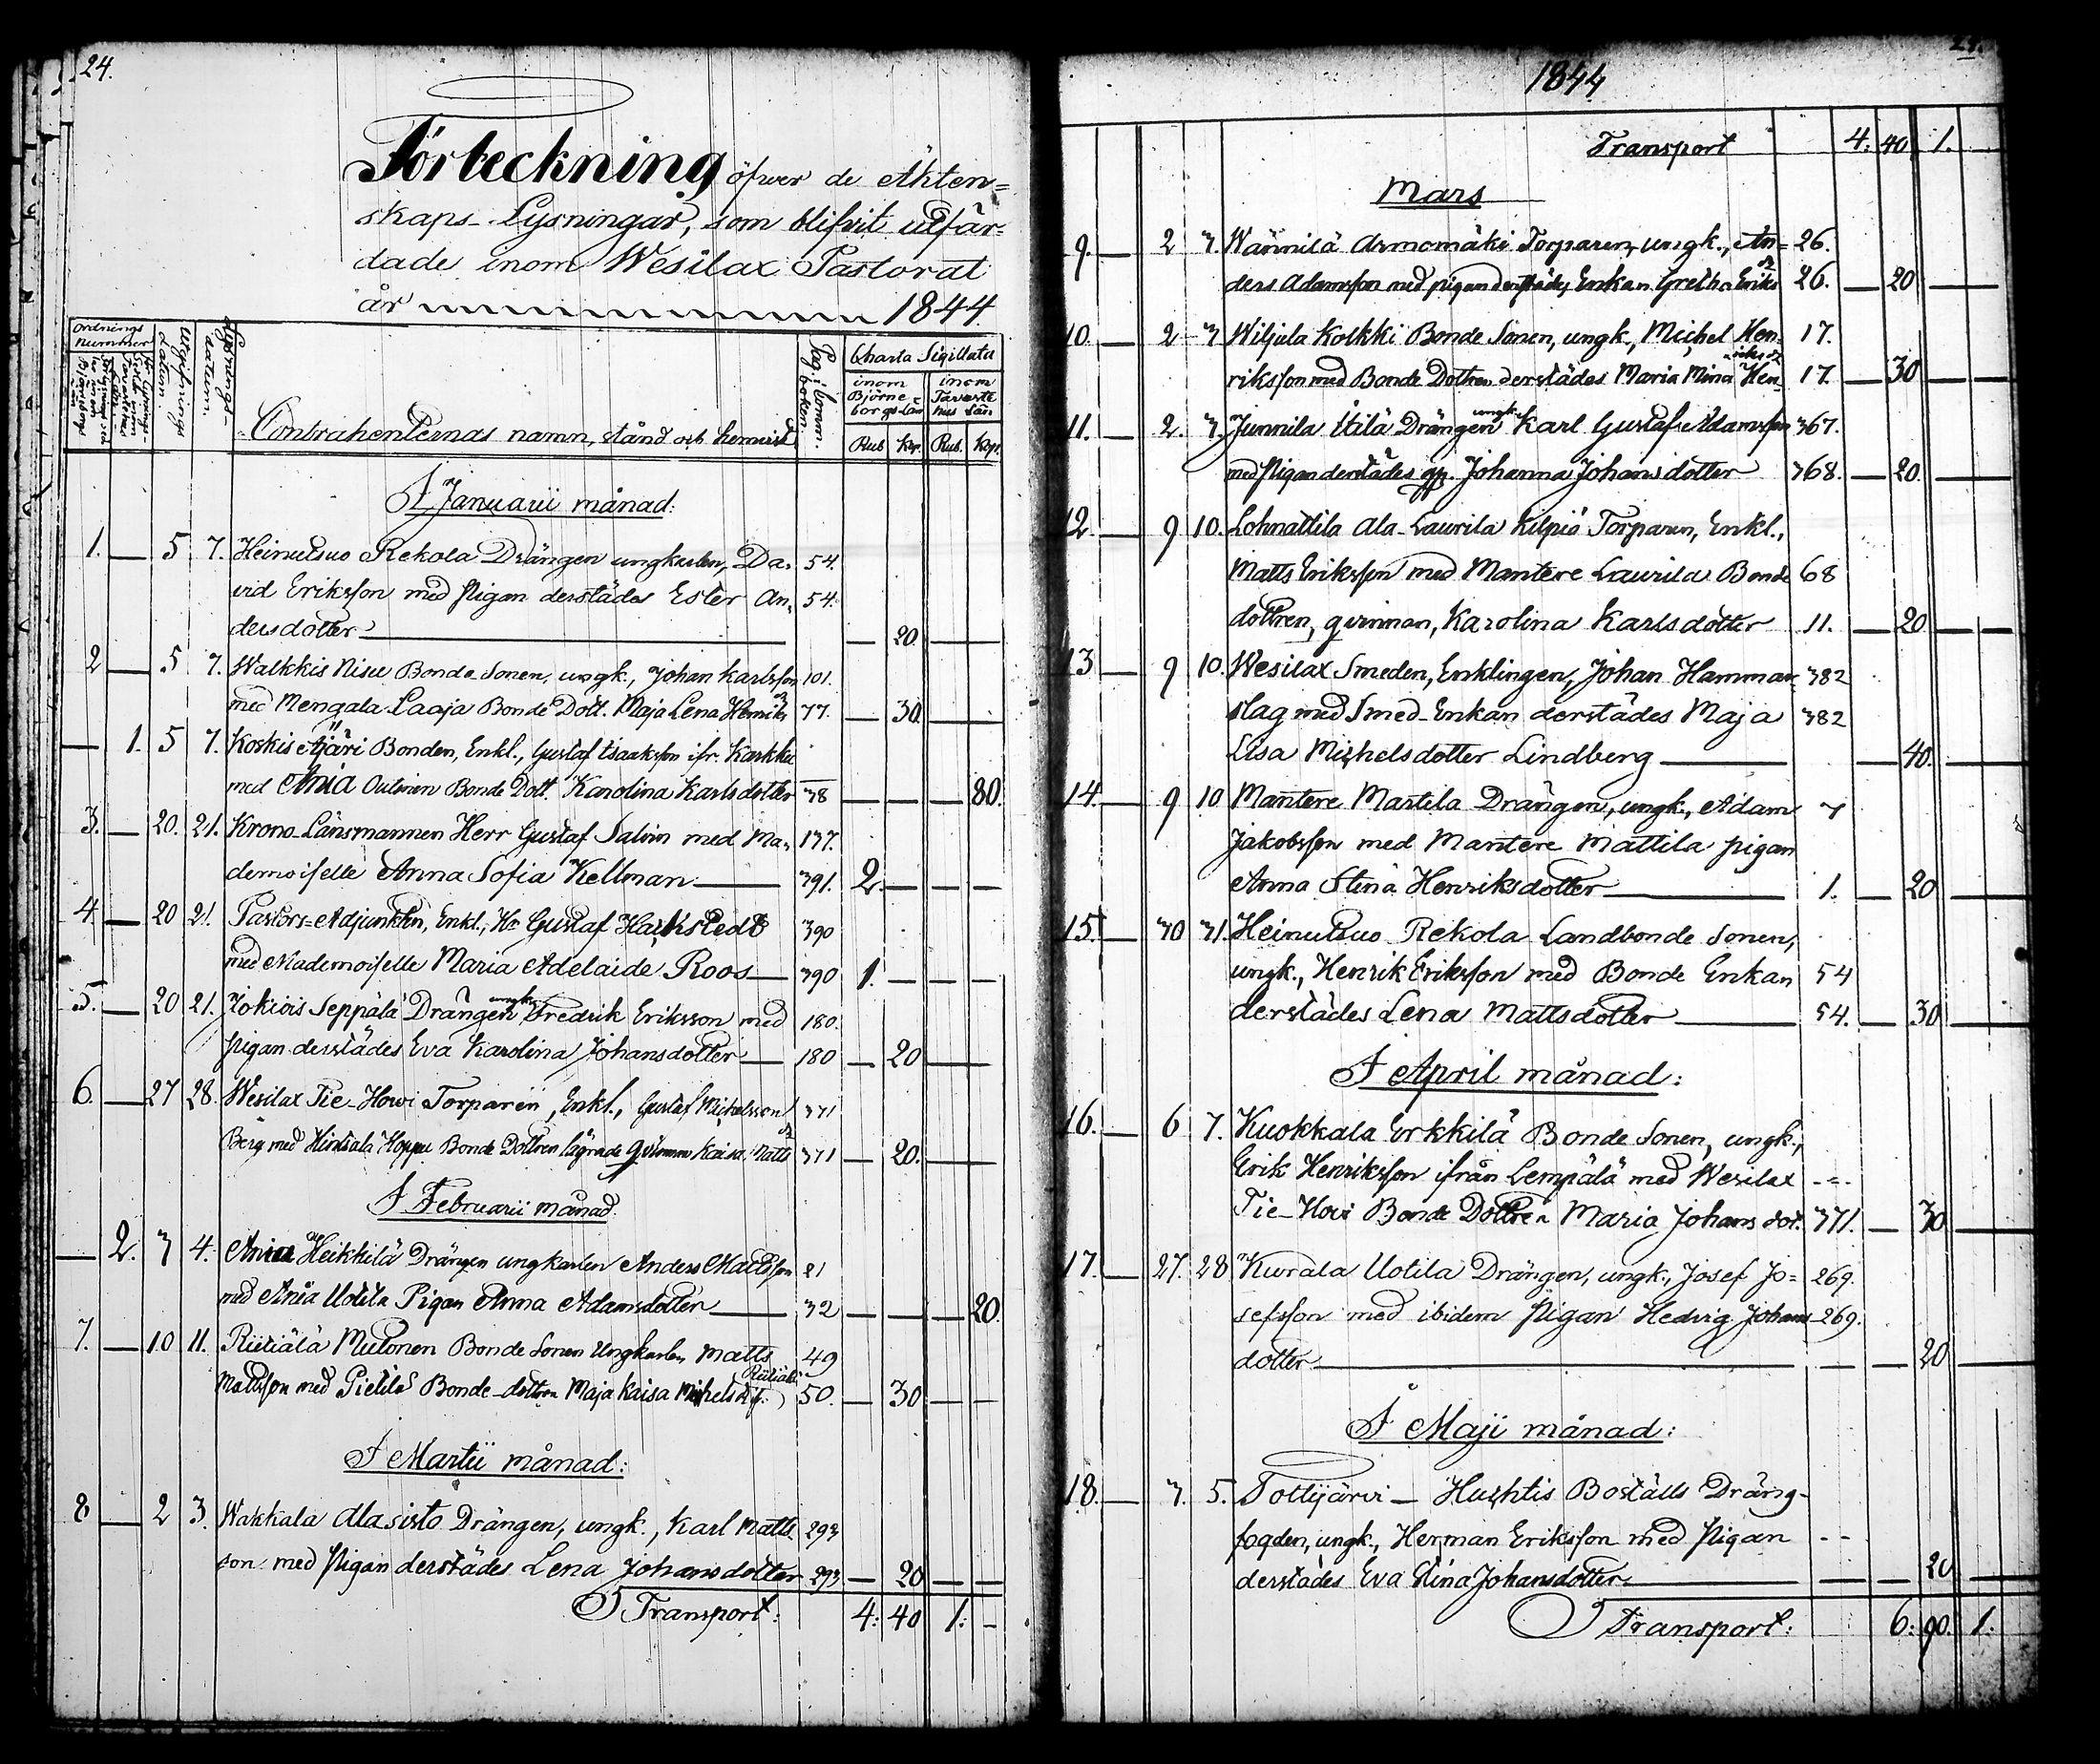 24.
Förteckning öfwer de Äkten=
skaps-Lysningar, som blifvit utfär-
dade inom Wesilax Pastorat
år 1844.
Ordnings Nummer
Utgifnings datum.
Lysnings-datum.
Contrahenternas namn, stånd och hemvist
Pag. i komm. boken.
Charta Sigillata
inom Björne-borgs Län
inom Tavaste hus Län.
Rub. Kop. Rub. Kop.
I Januarii månad:
1. — 5 7. Heinutsuo Rekola Drängen ungkarlen, Da- 54.
vid Eriksson med Pigan derstädes Ester An- 54.
dersdotter — 20 —
2 — 5 7. Walkkis Nisu Bonde Sonen, ungk., Johan Karlsson 101.
med Mengala Laaja Bonde Dott. Maja Lena Henriks dr 77. — 30. —
— 1. 5 7. Koskis Äijäri Bonden, Enkl., Gustaf Isaaksson ifr. Karkku
med Ania Outinen Bonde Dott. Karolina Karlsdotter 38 — — — 80.
3. — 20. 21. Krono-Länsmannen Herr Gustaf Salvin med Ma- 137.
demoiselle Anna Sofia Kellman — 391. 2. — — —
4. — 20 21. Pastors=Adjunkten, Enkl., Hr Gustaf Harkstedt 390
med Mademoiselle Maria Adelaide Roos — 390 1. — — —
5. — 20 21. Jokiois Seppälä Drängen ungk. Fredrik Eriksson med 180.
pigan derstädes Eva Karolina Johansdotter — 180 — 20 —
6. — 27 28. Wesilax Tie-Howi Torparen, Enkl., Gustaf Michelsson 371
Berg med Hinsala Hoppu Bonde Dottren lägrade Qvinnan Kaisa Matts dr 371 — 20. —
I Februarii månad.
— 2. 3 4. Ania Heikkilä Drängen ungkarlen Anders Mattsson 21
med Ania Uotila Pigan Anna Adamsdotter — 32 — — — 20.
7. — 10 11. Riitiälä Mutonen Bonde Sonen Ungkarlen Matts 49
Mattsson med Pietilä Riitiälä Bonde-dottren Maja Kaisa Michelsdr 50. — 30 — —
I Martii månad:
8 — 2 3. Wakkala Alasisto Drängen, ungk., Karl Matts- 293
son med Pigan derstädes Lena Johansdotter 293 — 20 — —
Transport: 4: 40 1: -
1844
Transport 4: 40 1. —
Mars
9. — 2 3. Wännilä Armomäki Torparen, ungk., An= 26.
ders Adamsson med pigan derstädes Enkan Gretha Eriks dr 26. — 20 —
10. — 2 3 Wiljula Kolkki Bonde Sonen, ungk., Michel Hen- 17.
riksson med Bonde Dottren derstädes Maria Mina Hen- riksdr 17. — 30 —
11. — 2. 3. Junnila Itilä Drängen ungk. Karl Gustaf Adamsson 367.
med Pigan derstädes Johanna Johansdotter 368. — 20. —
12. — 9 10. Lohnattila Ala-Laurila Kilpiö Torparen, Enkl.,
Matts Eriksson med Mantere Laurila Bonde 68
dottren, qvinnan, Karolina Karlsdotter 11. — 20 —
13 — 9 10. Wesilax Smeden, Enklingen, Johan Hammar- 382
slag med Smed-Enkan derstädes Maja 382
Lisa Michelsdotter Lindberg — 40. —
14. — 9 10 Mantere Martila Drängen, ungk., Adam 7
Jakobsson med Mantere Mattila pigan
Anna Stina Henriksdotter — 1. — 20 —
15. — 30 31. Heinutsuo Rekola Landbonde Sonen,
ungk., Henrik Eriksson med Bonde Enkan 54
derstädes Lena Mattsdotter — 54. — 30 —
I April månad:
16. — 6 7. Kuokkala Erkkilä Bonde Sonen, ungk.,
Erik Henriksson ifrån Lempälä med Wesilax - - -
Tie-Howi Bonde Dottren Maria Johans dot. 371. — 30 —
17. — 27. 28 Kurala Uotila Drängen, ungk., Josef Jo= 269.
sefsson med ibidem Pigan Hedvig Johans 269.
dotter — — 20 —
I Maji månad:
18. — 3. 5. Tottijärvi — Huhtis Boställs Dräng-
fogden, ungk., Herman Eriksson med Pigan - -
derstädes Eva Stina Johansdotter. — — 20 —
Transport: 6: 90. 1: